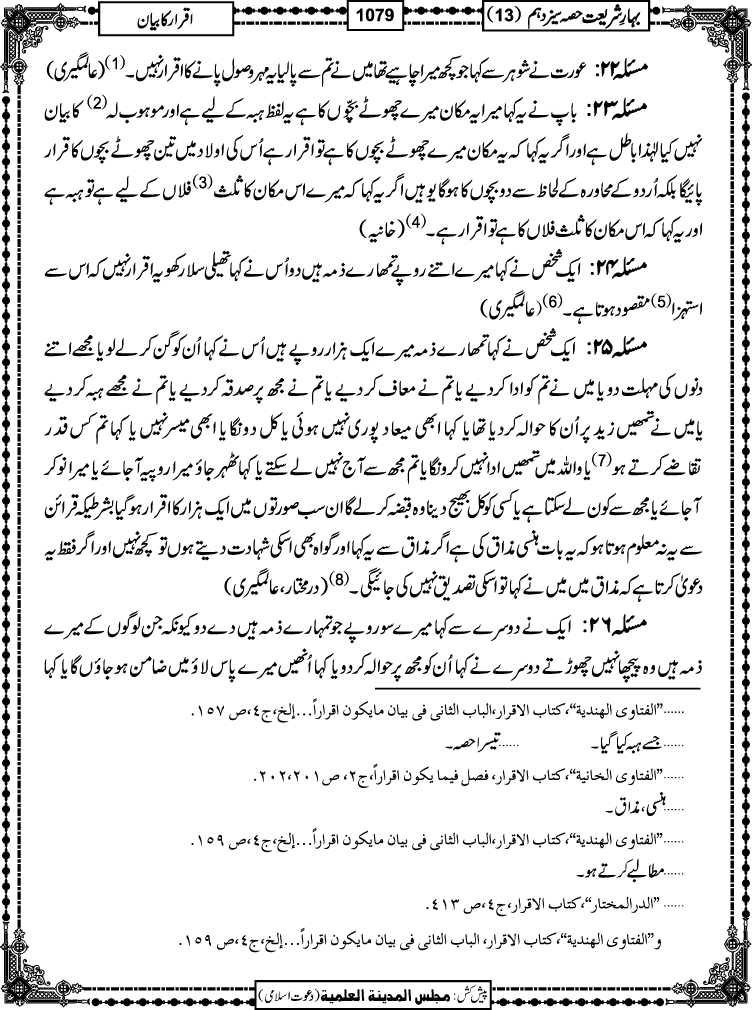 بہارِ شریعت حصہ سیزدہم (13)
1079
اقرار کا بیان
مسئلہ ۲۲: عورت نے شوہر سے کہا جو کچھ میرا چاہیے تھا میں نے تم سے پالیا یہ مہر وصول پانے کا اقرار نہیں۔(1) (عالمگیری)
مسئلہ ۲۳: باپ نے یہ کہا میرا یہ مکان میرے چھوٹے بچّوں کا ہے یہ لفظ ہبہ کے لیے ہے اور موہوب لہ(2) کا بیان
نہیں کیا لہٰذا باطل ہے اور اگر یہ کہا کہ یہ مکان میرے چھوٹے بچوں کا ہے تو اقرار ہے اُس کی اولاد میں تین چھوٹے بچوں کا قرار
پائیگا بلکہ اُردو کے محاورہ کے لحاظ سے دو بچوں کا ہوگا یو ہیں اگر یہ کہا کہ میرے اس مکان کا ثلث(3) فلاں کے لیے ہے تو ہبہ ہے
اور یہ کہا کہ اس مکان کا ثلث فلاں کا ہے تو اقرار ہے۔(4) (خانیہ)
مسئلہ ۲۴: ایک شخص نے کہا میرے اتنے روپے تمھارے ذمہ ہیں دو اُس نے کہا تھیلی سلا رکھو یہ اقرار نہیں کہ اس سے
استہزا(5) مقصود ہوتا ہے۔(6) (عالمگیری)
مسئلہ ۲۵: ایک شخص نے کہا تمھارے ذمہ میرے ایک ہزار روپے ہیں اُس نے کہا اُن کو گن کر لے لو یا مجھے اتنے
دنوں کی مہلت دو یا میں نے تم کو ادا کر دیے یا تم نے معاف کر دیے یا تم نے مجھ پر صدقہ کر دیے یا تم نے مجھے ہبہ کر دیے
یا میں نے تمھیں زید پر اُن کا حوالہ کر دیا تھا یا کہا ابھی میعاد پوری نہیں ہوئی یا کل دونگا یا ابھی میسر نہیں یا کہا تم کس قدر
تقاضے کرتے ہو(7) یا واللہ میں تمھیں ادا نہیں کرونگا یا تم مجھ سے آج نہیں لے سکتے یا کہا ٹھہر جاؤ میرا روپیہ آجائے یا میرا نوکر
آجائے یا مجھ سے کون لے سکتا ہے یا کسی کو کل بھیج دینا وہ قبضہ کر لے گا ان سب صورتوں میں ایک ہزار کا اقرار ہو گیا بشرطیکہ قرائن
سے یہ نہ معلوم ہوتا ہو کہ یہ بات ہنسی مذاق کی ہے اگر مذاق سے یہ کہا اور گواہ بھی اسکی شہادت دیتے ہوں تو کچھ نہیں اور اگر فقط یہ
دعویٰ کرتا ہے کہ مذاق میں میں نے کہا تو اسکی تصدیق نہیں کی جائیگی۔(8) (درمختار، عالمگیری)
مسئلہ ۲۶: ایک نے دوسرے سے کہا میرے سو روپے جو تمہارے ذمہ ہیں دے دو کیونکہ جن لوگوں کے میرے
ذمہ ہیں وہ پیچھا نہیں چھوڑتے دوسرے نے کہا اُن کو مجھ پر حوالہ کردو یا کہا اُنھیں میرے پاس لاؤ میں ضامن ہو جاؤں گا یا کہا
......"الفتاوی الھندیۃ"، کتاب الاقرار، الباب الثانی فی بیان مایکون اقراراً...إلخ، ج٤، ص١٥٧.
......جسے ہبہ کیا گیا۔ ......تیسرا حصہ۔
......"الفتاوی الخانیۃ"، کتاب الاقرار، فصل فیما یکون اقراراً، ج٢، ص٢٠١،٢٠٢.
......ہنسی، مذاق۔
......"الفتاوی الھندیۃ"، کتاب الاقرار، الباب الثانی فی بیان مایکون اقراراً...إلخ، ج٤، ص١٥٩.
......مطالبے کرتے ہو۔
......"الدرالمختار"، کتاب الاقرار، ج٤، ص٤١٣.
و"الفتاوی الھندیۃ"، کتاب الاقرار، الباب الثانی فی بیان مایکون اقراراً...إلخ، ج٤، ص١٥٩.
پیش کش: مجلس المدینۃ العلمیۃ (دعوت اسلامی)